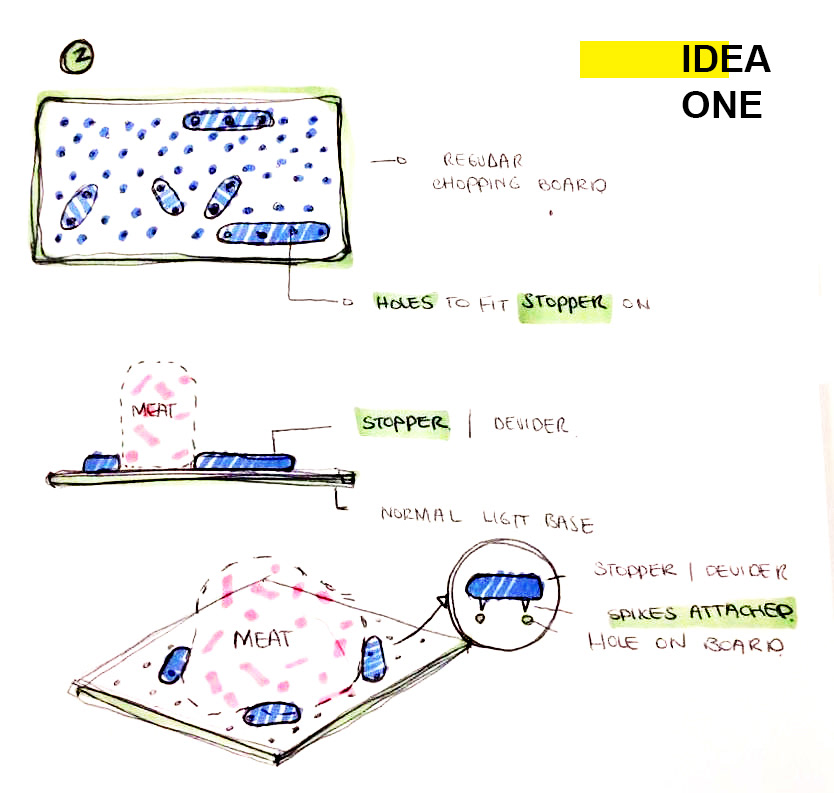 2
IDEA
ONE
REGULAR
CHOPPING BOARD
HOLES TO FIT STOPPER ON
MEAT
STOPPER | DEVIDER
NORMAL LIGHT BASE
STOPPER | DEVIDER
SPIKES ATTACHED
HOLE ON BOARD
MEAT